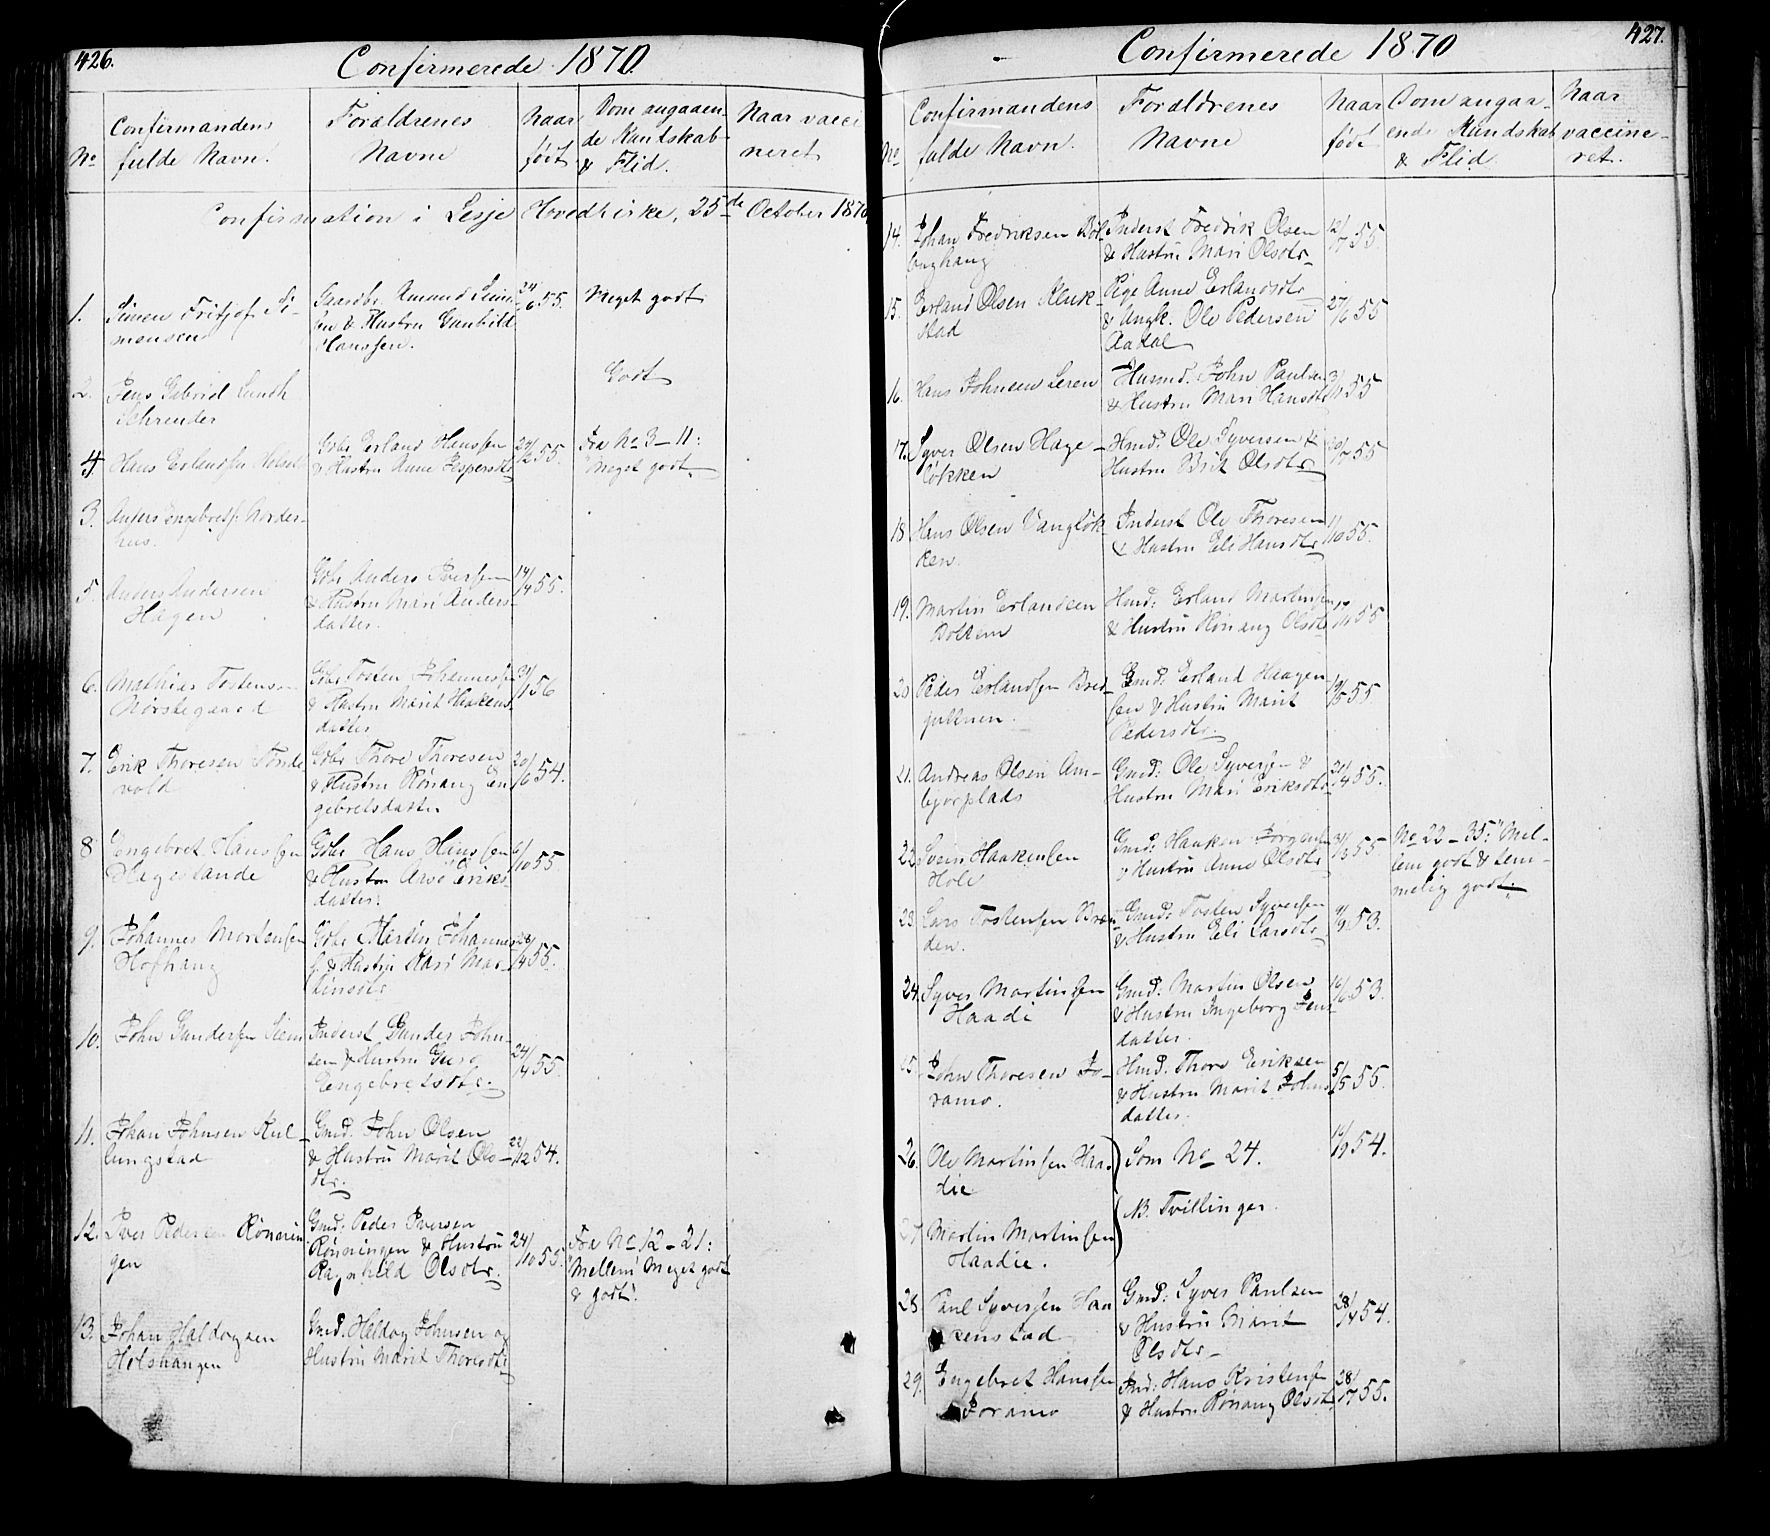 426.
Confirmerede 1870.
No
Confirmandens
fulde Navn.
Forældrenes
Navne
Naar
født
Dom angaaen-
de Kundskab
& Flid.
Naar vacci
neret
Confirmation i Lesje Hovedkirke, 25de October 1870
1. Simen Fridjof Si-
mensen
Gaardbr. Amund Sim
sen & Hustru Gunhild
Hanssen.
24/6 55.
Meget godt
2. Jens Gabriel Lundh
Schreuder
Godt
4. Hans Erlandsen
Gbr Erland Hanssen
& Hustru Anne Jespersdtr
24/2 55.
Fra No 3-11:
"Meget godt"
3. Anders Engebretss. Norder-
hus.
5. Anders Andersen
Hagen
Gbr Anders Iversen
& Hustru Mari Anders-
datter.
14/4 55.
6. Mathias Tostensen
Norstegaard
Gbr Tosten Johannessen
& Hustru Marit Haakens
datter
31/1 56
7. Erik Thoresen Tønde
vold
Gbr Thore Thoresen
& Hustru Rønnaug En
gebretsdatter
20/6 54.
8 Engebret Hanssen
Hageslande
Gbr Hans Hanssen
& Hustru Eriks
datter.
6/10 55
9. Johannes Mortensen
Hofhaug
Gbr Martin Johannes
s. & Hustru Kari Mar-
tinsdtr
28/4 55.
10. John Gundersen Siem
Inderst Gunder John-
sen & Hustru Guro
Engebretsdtr.
24/4 55
11. Johan Johnsen Kul-
lungstad
Gmd. John Olsen
& Hustru Marit Ols-
dtr.
22/12 54.
12. Iver Pedersen Rønnin
gen
Gmd. Peder Iversen
Rønningen & Hustru
Ragnhild Olsdtr.
24/10 55.
Fra No 12-21:
"Mellem Meget godt
& godt".
13. Johan Haldogsen
Holshaugen
Gmd. Haldog Johnsen og
Hustru Marit Thoresdtr
427.
Confirmerede 1870
No
Confirmandens
fulde Navn.
Forældrenes
Navne
Naar
født
Dom angaa-
ende Kundskab
& Flid.
Naar
vaccine-
ret.
14. Johan Fredriksen Bøl-
Inderst Fredrik Olsen
& Hustru Mari Olsdtr
12/7 55
15. Erland Olsen Kluk-
stad
Pige Anne Erlandsdtr
& Ungk. Ole Pedersen
Aadal
27/6 55
16. Hans Johnsen Leren
Husmd. John Paulsen
& Hustru Mari Hansdtr
55
17. Syver Olsen Hage-
løkken
Hmd. Ole Syversen &
Hustru Brit Olsdtr
20/7 55
18 Hans Olsen Vangløk
ken
Inderst Ole Thoresen
& Hustru Eli Hansdtr
1/10 55.
19. Martin Erlandsen
Dolkem
Hmd: Erland Martinsen
& Hustru Rønnaug Olsdtr
55
20 Peder Erlandsen Bred-
jultnen.
Gmd. Erland Haagen
sen & Hustru Marit
Pedersdtr.
19/5 55
21. Andreas Olsen Am-
bjorplads
Gmd: Ole Syversen &
Hustru Mari Eriksdtr
21/4 55.
22. Svein Haakensen
Hole
Gmd: Haaken Jørgensen
& Hustru Anne Olsdtr
31/3 55
No 22-35: "Mel-
lem godt & tem-
melig godt".
23. Lars Tostensen Bræn
den.
Gmd: Tosten Syversen
& Hustru Eli Larsdtr
9/9 53.
24. Syver Martinsen
Haadie
Gmd: Martin Olsen
& Hustru Ingeborg Jens
datter.
16/6 53.
25. John Thoresen Jo-
ramo.
Hmd. Thore Eriksen
& Hustru Marit Johns
datter.
5/5 55.
26. Ole Martinsen Haa-
die
Som No 24.
54.
27 Martin Martinsen
Haadie.
NB. Tvillinger.
28 Paul Syversen Haa
kenstad
Gmd: Syver Paulsen
& Hustru Marit
Olsdtr
28/4 54.
29. Engebret Hanssen
Joramo
Ind: Hans Kristensen
& Hustru Rønnaug Olsdtr
28/7 55.